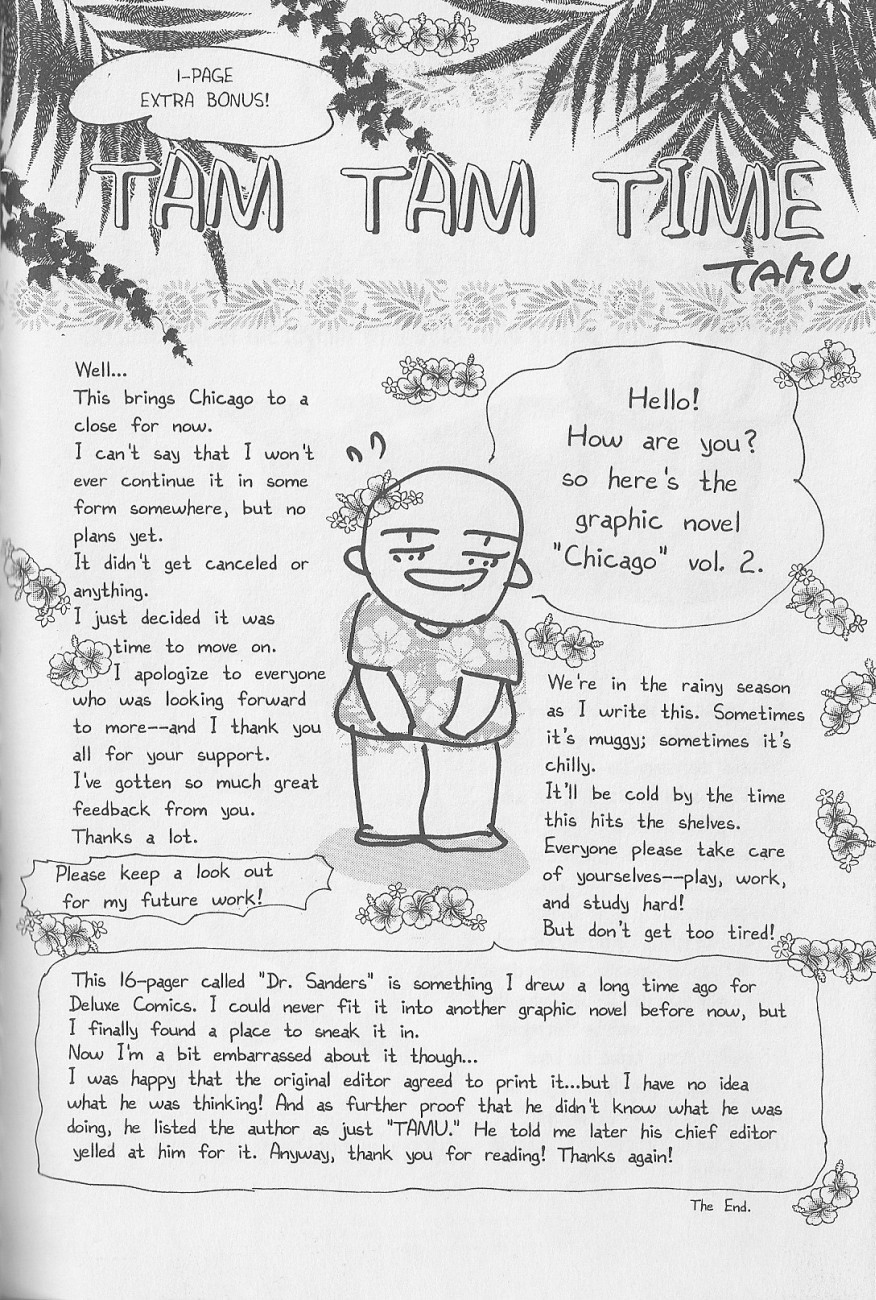 1-PAGE
EXTRA BONUS!
TAM TAM TIME
TAMU.
Hello!
How are you?
so here's the
graphic novel
"Chicago" vol. 2.
Well...
This brings Chicago to a
close for now.
I can't say that I won't
ever continue it in some
form somewhere, but no
plans yet.
It didn't get canceled or
anything.
I just decided it was
time to move on.
I apologize to everyone
who was looking forward
to more--and I thank you
all for your support.
I've gotten so much great
feedback from you.
Thanks a lot.
Please keep a look out
for my future work!
We're in the rainy season
as I write this. Sometimes
it's muggy; sometimes it's
chilly.
It'll be cold by the time
this hits the shelves.
Everyone please take care
of yourselves--play, work,
and study hard!
But don't get too tired!
This 16-pager called "Dr. Sanders" is something I drew a long time ago for
Deluxe Comics. I could never fit it into another graphic novel before now, but
I finally found a place to sneak it in.
Now I'm a bit embarrassed about it though...
I was happy that the original editor agreed to print it...but I have no idea
what he was thinking! And as further proof that he didn't know what he was
doing, he listed the author as just "TAMU." He told me later his chief editor
yelled at him for it. Anyway, thank you for reading! Thanks again!
The End.